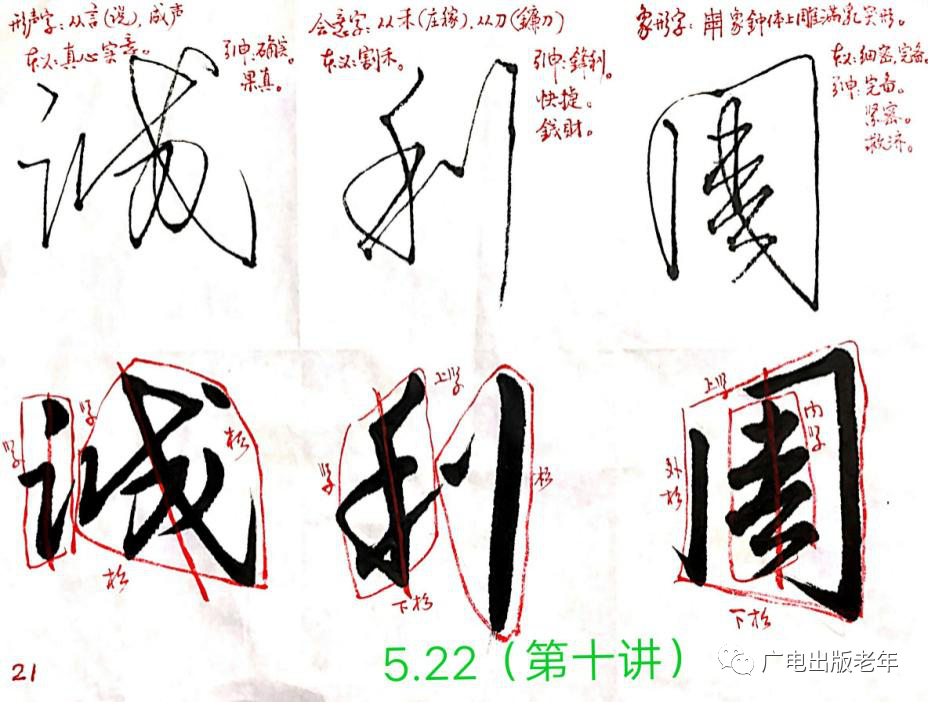 形声字：从言(说)，成声
本义：真心实意。
引申：确实。
果真。
诚
会意字：从禾(庄稼)，从刀(鐮刀)
本义：割禾。
引申：鋒利。
快捷。
錢財。
利
象形字：
象鐘体上雕滿乳突形。
本义：细密，完备。
引申：完备。
紧密。
救济。
周
紧
诚
紧
松
松
上紧
紧
利
松
下松
上紧
内紧
外松
周
下松
21
5.22（第十讲）
广电出版老年